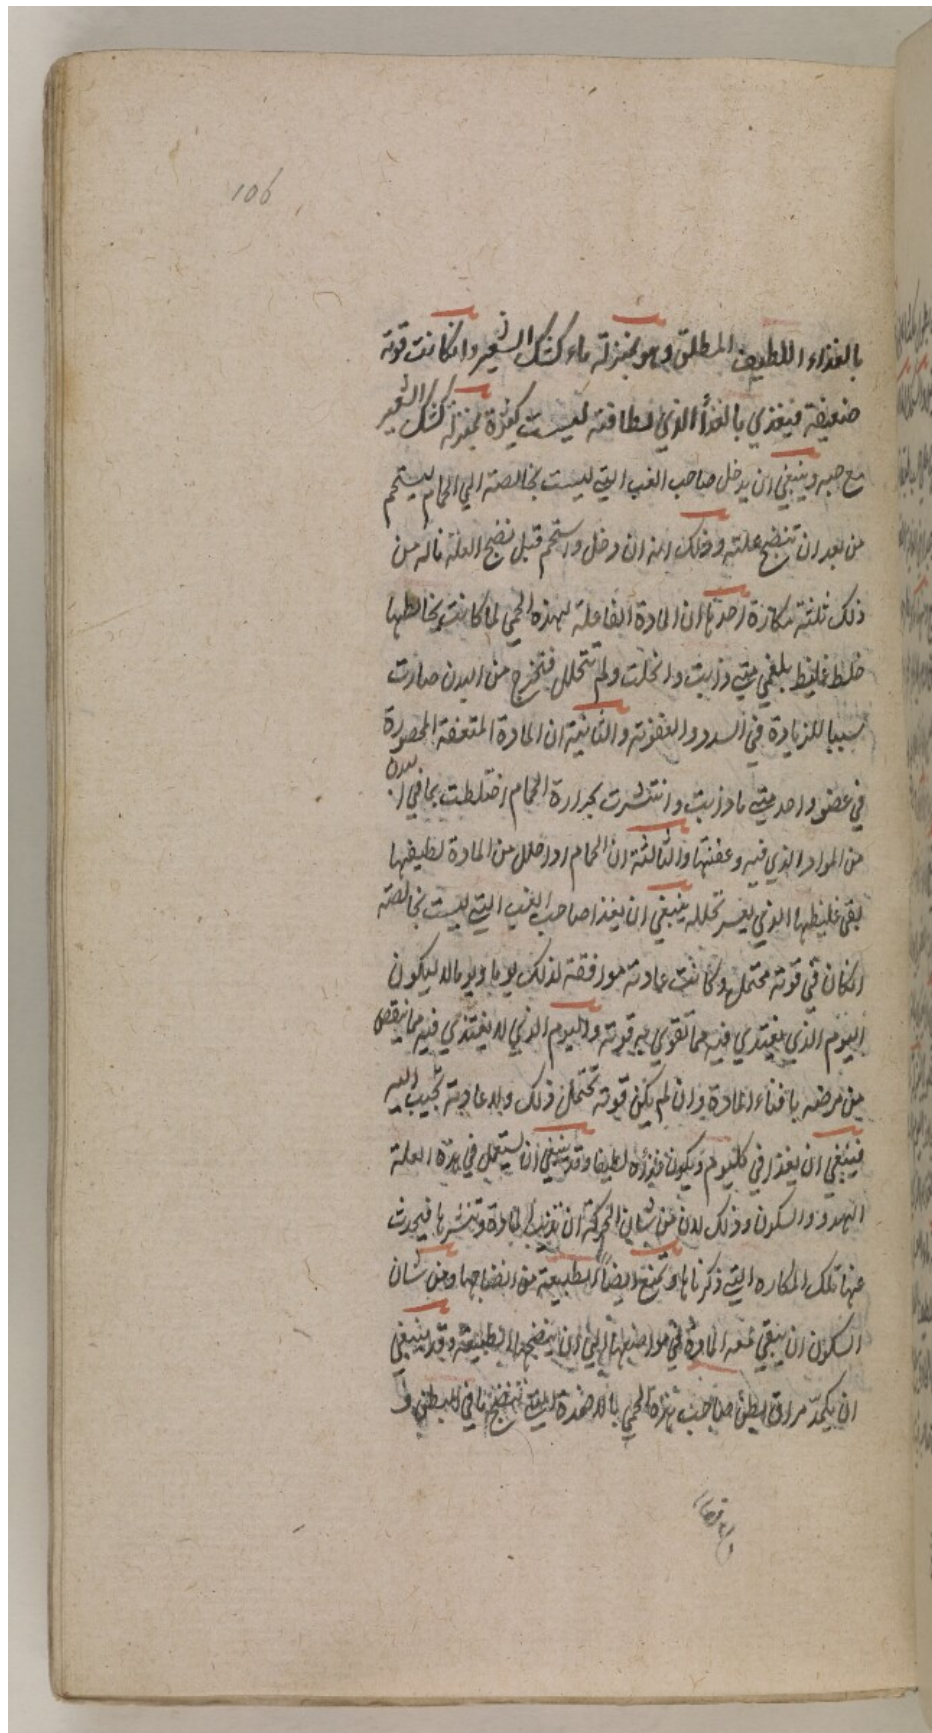 106
بالغذاء اللطيف المطلق وهو بمنزلة ماء كشك الشعير وان كانت قوته
ضعيفة فيغذي بالغذأ الذي لطافته ليست كثيرة بمنزلة كشك الشعير
مع حبه وينبغي ان يدخل صاحب الغب التي ليست بخالصة الي الحمام ليستحم
من بعد ان تنضج علته وذلك انه ان دخل واستحم قبل نضج العلة ناله من
ذلك ثلثة مكاره احدها ان المادة الفاعلة لهذه الحمي لما كانت يخالطها
خلط غليظ بلغمي متي ذابت وانحلت ولم تتحلل فتخرج من البدن صارت
سببا للزيادة في السدد والعفونة والثانية ان المادة المتعفنة المحصورة
في عضو واحد متي ما ذابت وانتشرت بحرارة الحمام اختلطت بما في البدن
من المواد الذي فيه وعفنتها والثالثة ان الحمام اذا حلل من المادة لطيفها
بقي غليظها الذي يعسر تحلله ينبغي ان يغذا صاحب الغب التي ليست بخالصة
ان كان في قوته محتمل وكانت عادته موافقة لذلك يوما ويوما لا ليكون
اليوم الذي يغتذي فيه مما تقوي به قوته واليوم الذي لا يغتذي فيه مما ينقص
من مرضه بافناء المادة وان لم يكن قوته تحتمل ذلك ولا عادته تجيب اليه
فينبغي ان يغذا في كل يوم ويكون غذؤه لطيفا وقد ينبغي ان يستعمل في هذه العلة
الهدوء والسكون وذلك لان من شان الحركة ان تذيب المادة وتنشرها فيحدث
عنها تلك المكاره التي ذكرناها وتمنع ايضا الطبيعة من انضاجها ومن شان
السكون ان يبقي معه المادة في مواضعها الي ان ينضجها الطبيعة وقد ينبغي
ان يكمد مراق بطن صاحب هذه الحمي بالاضمدة التي تنضج ما في البطن و